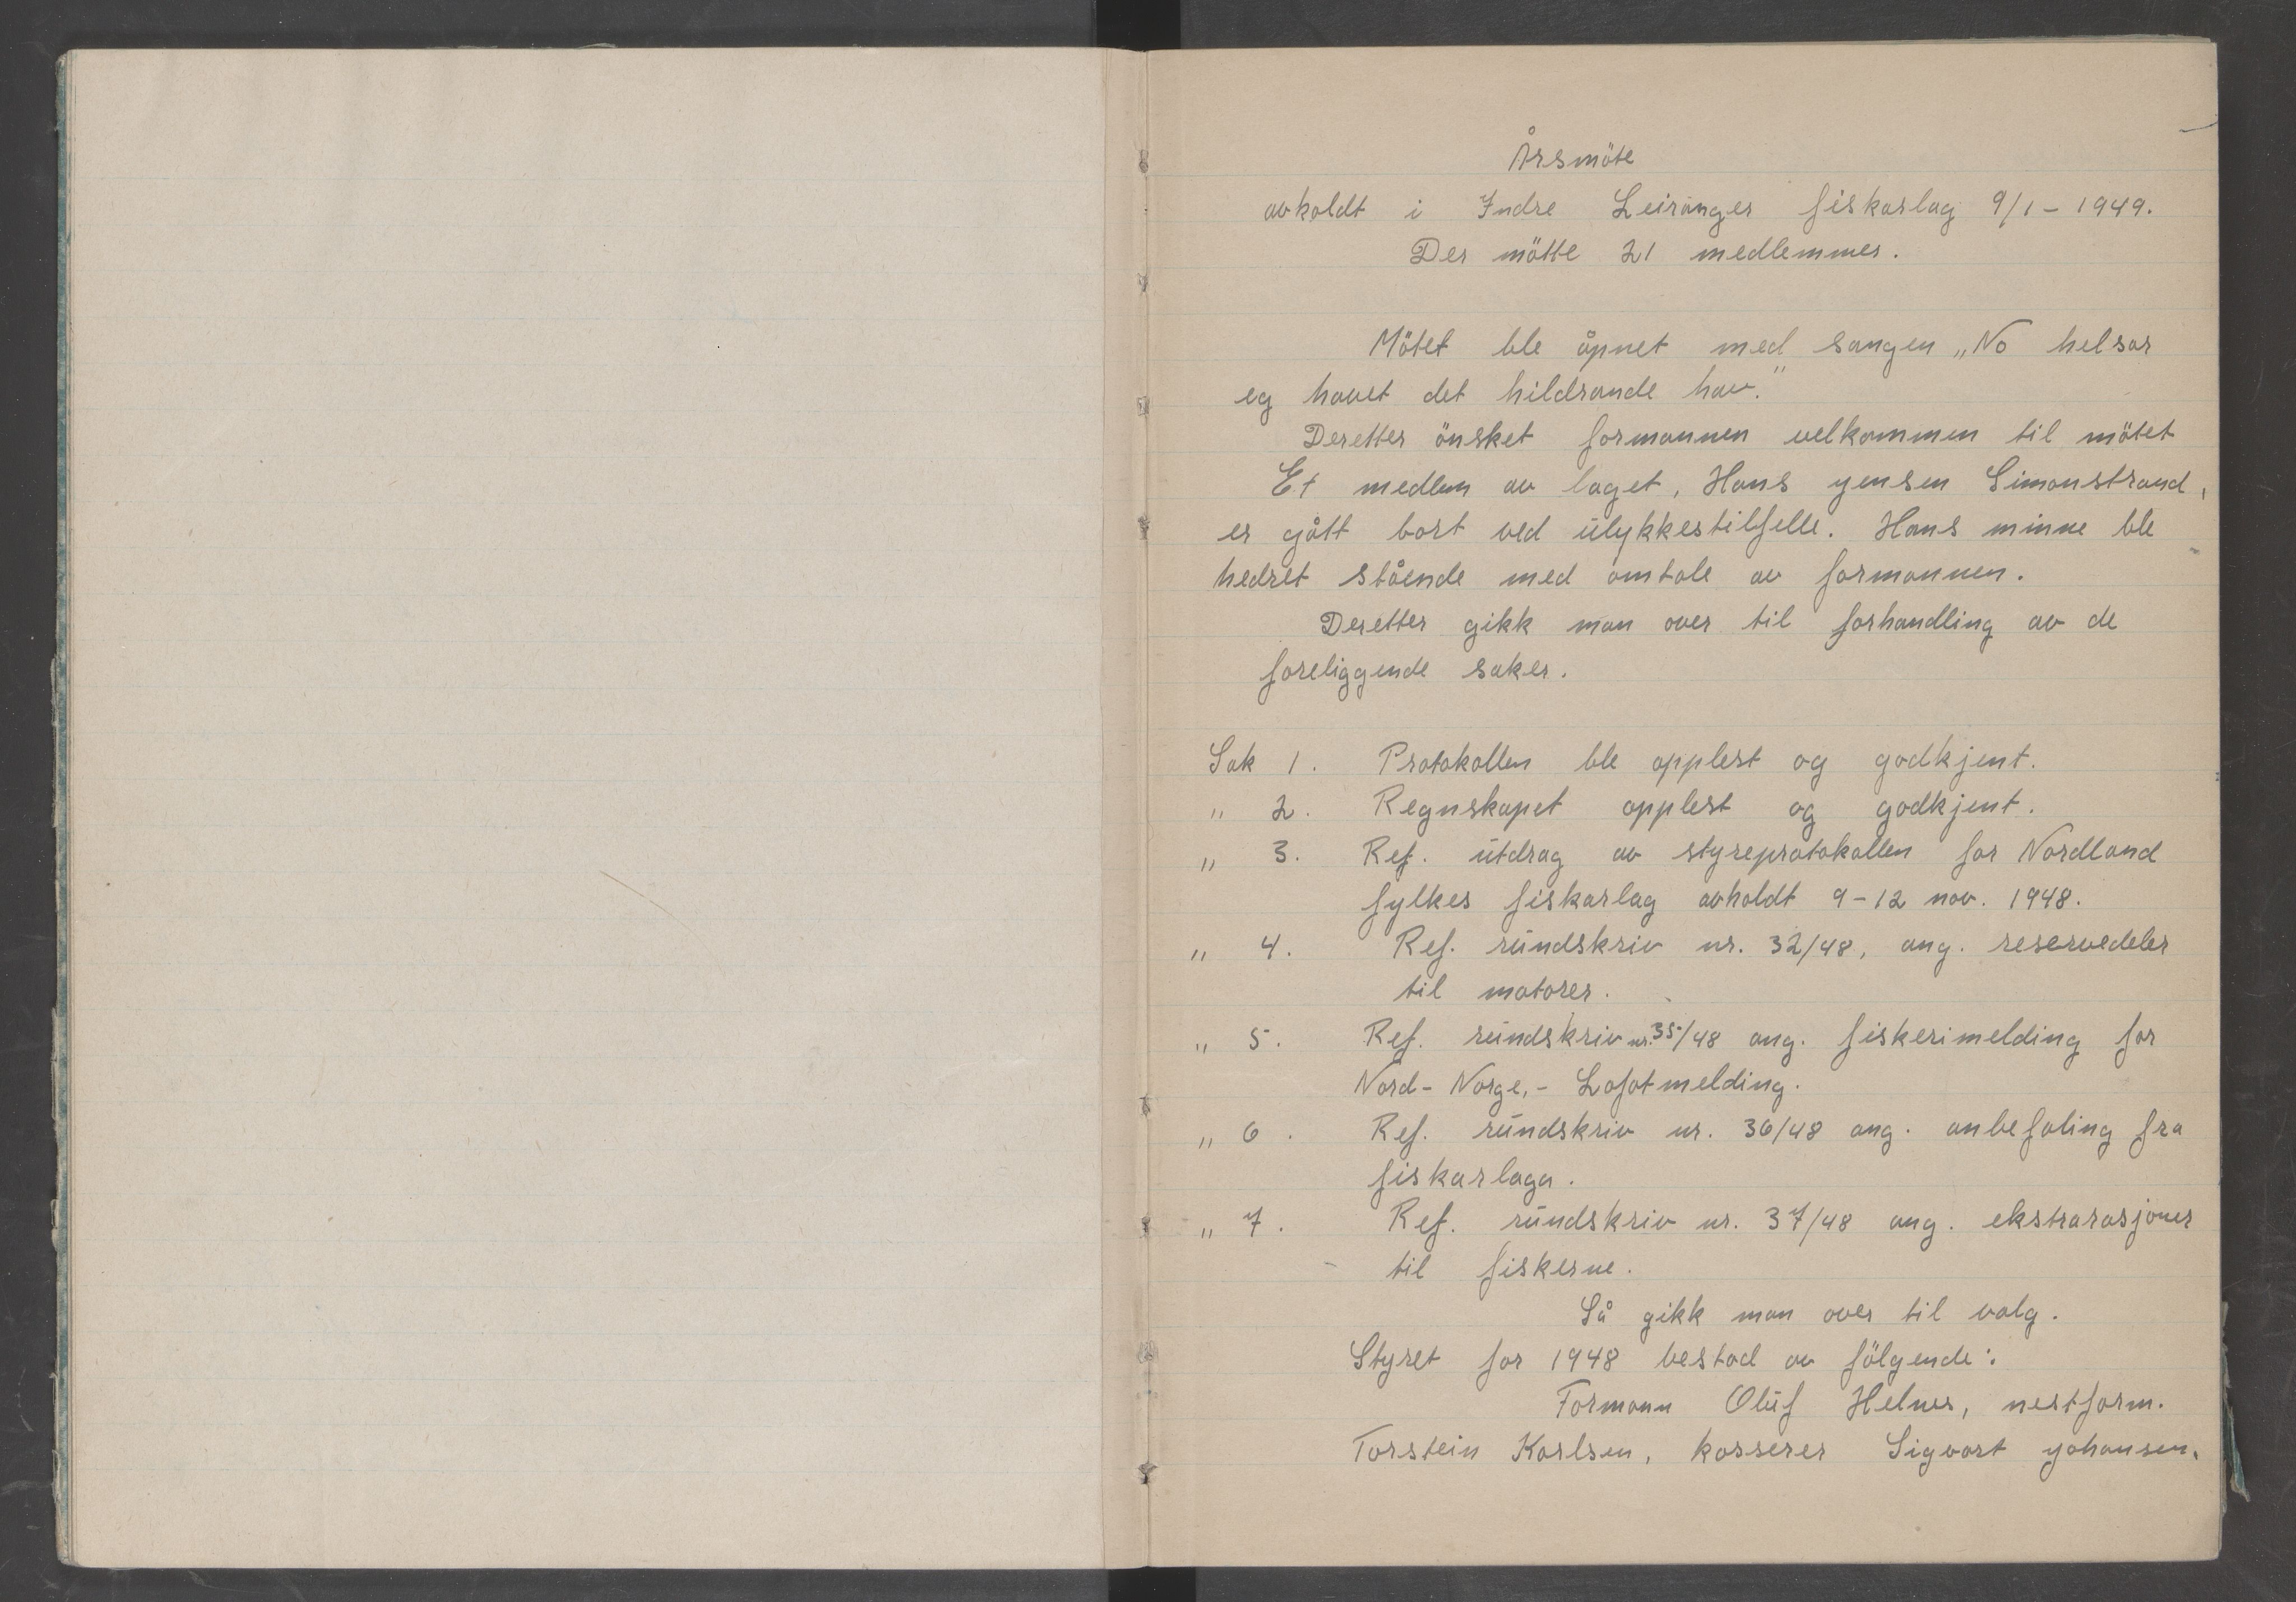 Årsmöte
avholdt i Indre Leiranger fiskarlag 9/1 - 1949.
Der mötte 21 medlemmer.
Mötet ble åpnet med sangen „No helsar
eg havet det hildrande hav."
Deretter önsket formannen velkommen til mötet
Et medlem av laget, Hans Jensen Simonstrand,
er gått bort ved ulykkestilfelle. Hans minne ble
hedret stående med omtale av formannen.
Deretter gikk man over til forhandling av de
foreliggende saker.
Sak 1. Protokollen ble opplest og godkjent.
„ 2. Regnskapet opplest og godkjent.
„ 3. Ref. utdrag av styreprotokollen for Nordland
fylkes fiskarlag avholdt 9-12 nov. 1948.
„ 4. Ref. rundskriv nr. 32/48, ang. reservedeler
til motorer.
„ 5. Ref. rundskriv nr. 35/48 ang. fiskerimelding for
Nord-Norge,- Lofotmelding.
„ 6. Ref. rundskriv nr. 36/48 ang. anbefaling fra
fiskarlaga.
„ 7. Ref. rundskriv nr. 37/48 ang. ekstrarasjoner
til fiskerne.
Så gikk man over til valg.
Styret for 1948 bestod av fölgende:
Formann Oluf Helnes, nestform.
Torstein Karlsen, kasserer Sigvart Johansen.